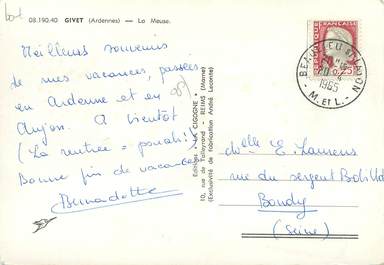 08.190.40 GIVET (Ardennes) — La Meuse.
Meilleurs souvenirs
de mes vacances, passées
en Ardenne et en
Anjou. A bientôt
(La rentrée = pouah!)
Bonne fin de vacances
Bernadette
Editions "LA CIGOGNE"
10, rue de Talleyrand - REIMS (Marne)
(Exclusivité de fabrication André Leconte)
REPUBLIQUE FRANÇAISE
0,25
BEAULIEU
1965
M. et L.
Melle E. Laurens
rue du sergent
Bondy
(Seine)